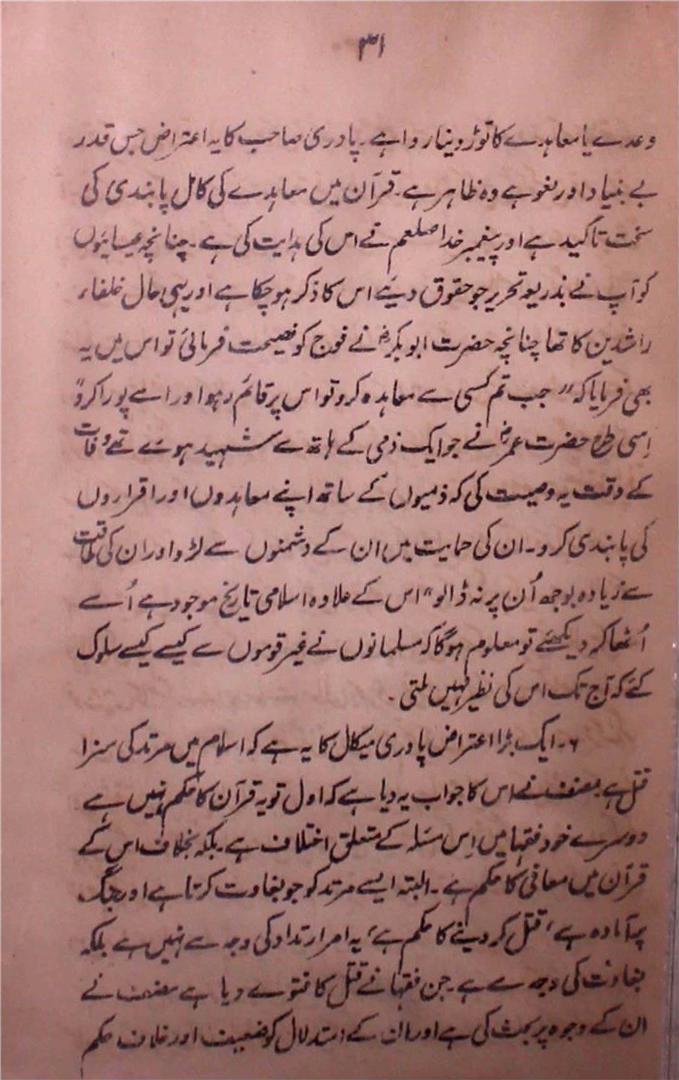 ۳۱
وعدے یا معاہدے کا توڑ دینا روا ہے۔ پادری صاحب کا یہ اعتراض جس قدر
بے بنیاد اور لغو ہے وہ ظاہر ہے۔ قرآن میں معاہدے کی کامل پابندی کی
سخت تاکید ہے اور پیغمبر خدا صلعم نے اس کی ہدایت کی ہے۔ چنانچہ عیسایئوں
کو آپ نے بذریعہ تحریر جو حقوق دیئے اس کا ذکر ہو چکا ہے اور یہی حال خلفاء
راشدین کا تھا چنانچہ حضرت ابوبکرؓ نے فوج کو نصیحت فرمائی تو اس میں یہ
بھی فرمایا کہ ”جب تم کسی سے معاہدہ کرو تو اس پر قائم رہو اور اسے پورا کرو“
اِسی طرح حضرت عمرؓ نے جو ایک ذمی کے ہاتھ سے شہید ہوے تھے وفات
کے وقت یہ وصیت کی کہ ذمیوں کے ساتھ اپنے معاہدوں اور اقراروں
کی پابندی کرو۔ ان کی حمایت میں ان کے دشمنوں سے لڑو اور ان کی طاقت
سے زیادہ بوجھ اُن پر نہ ڈالو“ اس کے علاوہ اسلامی تاریخ موجود ہے اُسے
اُٹھا کر دیکھئے تو معلوم ہوگا کہ مسلمانوں نے غیر قوموں سے کیسے کیسے سلوک
کئے کہ آج تک اس کی نظیر نہیں ملتی۔
۶۔ ایک بڑا اعتراض پادری میکال کا یہ ہے کہ اسلام میں مرتد کی سزا
قتل ہے مصنف نے اس کا جواب یہ دیا ہے کہ اول تو یہ قرآن کا حکم نہیں ہے
دوسرے خود فقہا میں اِس مسٔلہ کے متعلق اختلاف ہے۔ بلکہ بخلاف اس کے
قرآن میں معافی کا حکم ہے۔ البتہ ایسے مرتد کو جو بغاوت کرتا ہے اور جنگ
پر آمادہ ہے، قتل کر دینے کا حکم ہے، یہ امر ارتداد کی وجہ سے نہیں ہے بلکہ
بغاوت کی وجہ سے ہے۔ جن فقہا نے قتل کا فتوے دیا ہے مصنف نے
ان کے وجوہ پر بحث کی ہے اور ان کے استدلال کو ضعیف اور خلاف حکم